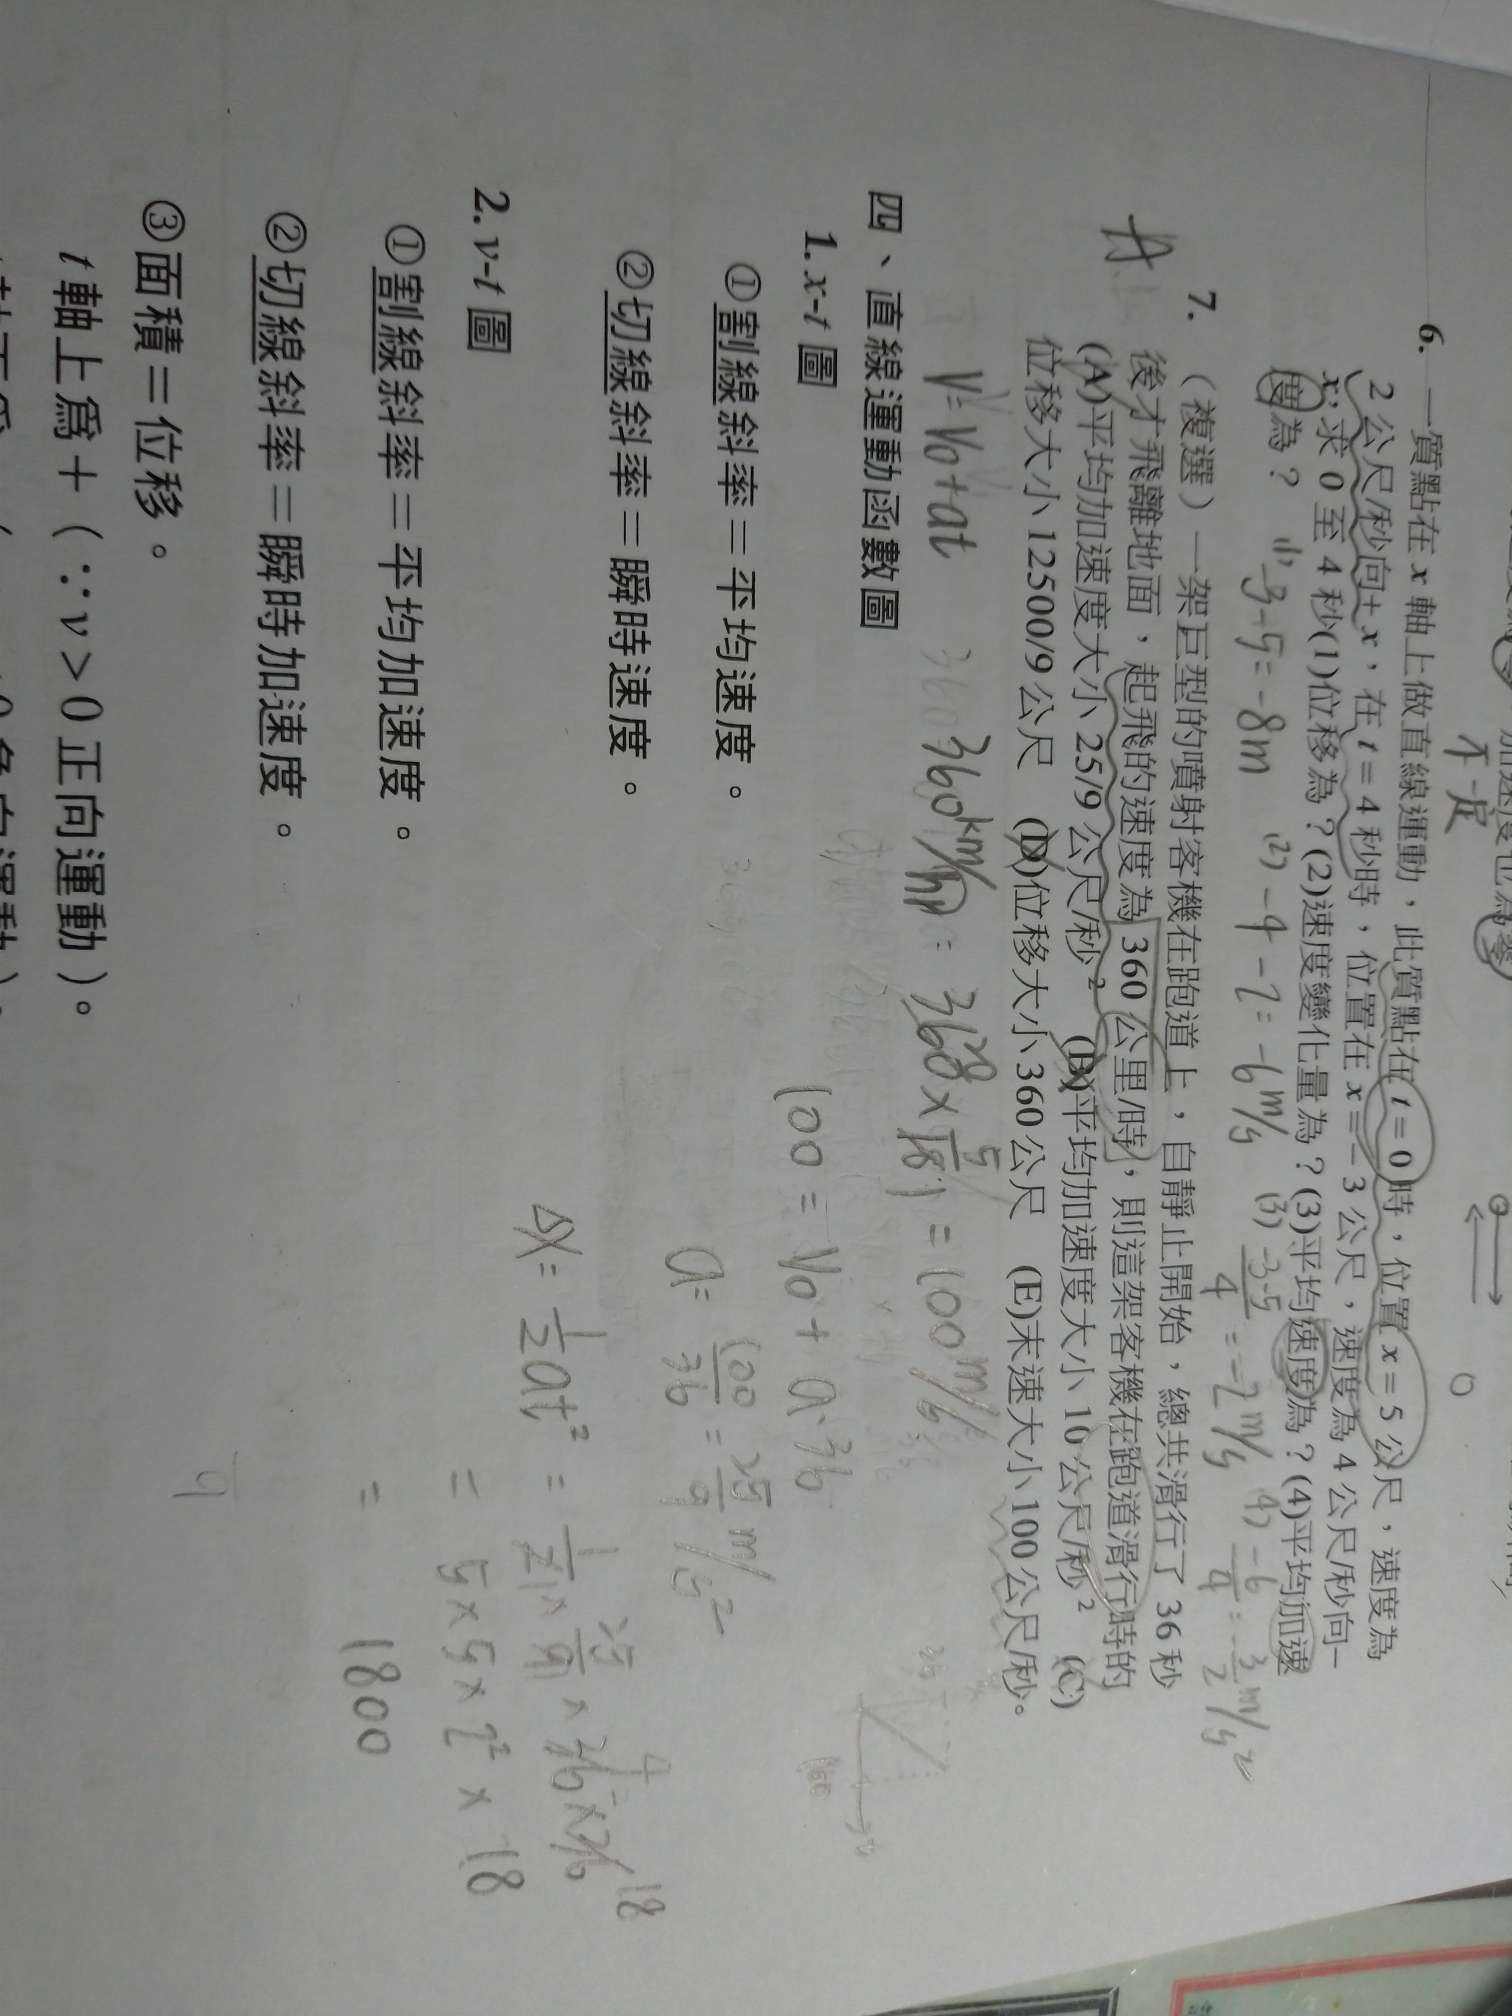 不一定
6. 一質點在 x 軸上做直線運動，此質點在 t = 0 時，位置 x = 5 公尺，速度為
2 公尺/秒向+ x，在 t = 4 秒時，位置在 x = – 3 公尺，速度為 4 公尺/秒向–
x，求 0 至 4 秒(1)位移為？(2)速度變化量為？(3)平均速度為？(4)平均加速
度為？
(1) -3-5=-8m (2) -4-2=-6m/s (3) -3-5/4=-2m/s (4) -6/4=-3/2 m/s²
7. （複選）一架巨型的噴射客機在跑道上，自靜止開始，總共滑行了 36 秒
後才飛離地面，起飛的速度為 360 公里/時，則這架客機在跑道滑行時的
(A)平均加速度大小 25/9 公尺/秒² (B)平均加速度大小 10 公尺/秒² (C)
位移大小 12500/9 公尺 (D)位移大小 360 公尺 (E)末速大小 100 公尺/秒。
V=V0+at 360 360km/hr = 360×5/18 = 100m/s
100 = V0 + a·36
a = 100/36 = 25/9 m/s²
ΔX = 1/2at² = 1/2 × 25/9 × 36×36
= 5×5×2²×18
= 1800
四、直線運動函數圖
1. x-t 圖
①割線斜率＝平均速度。
②切線斜率＝瞬時速度。
2. v-t 圖
①割線斜率＝平均加速度。
②切線斜率＝瞬時加速度。
③面積＝位移。
t 軸上為＋（∵v＞0 正向運動）。